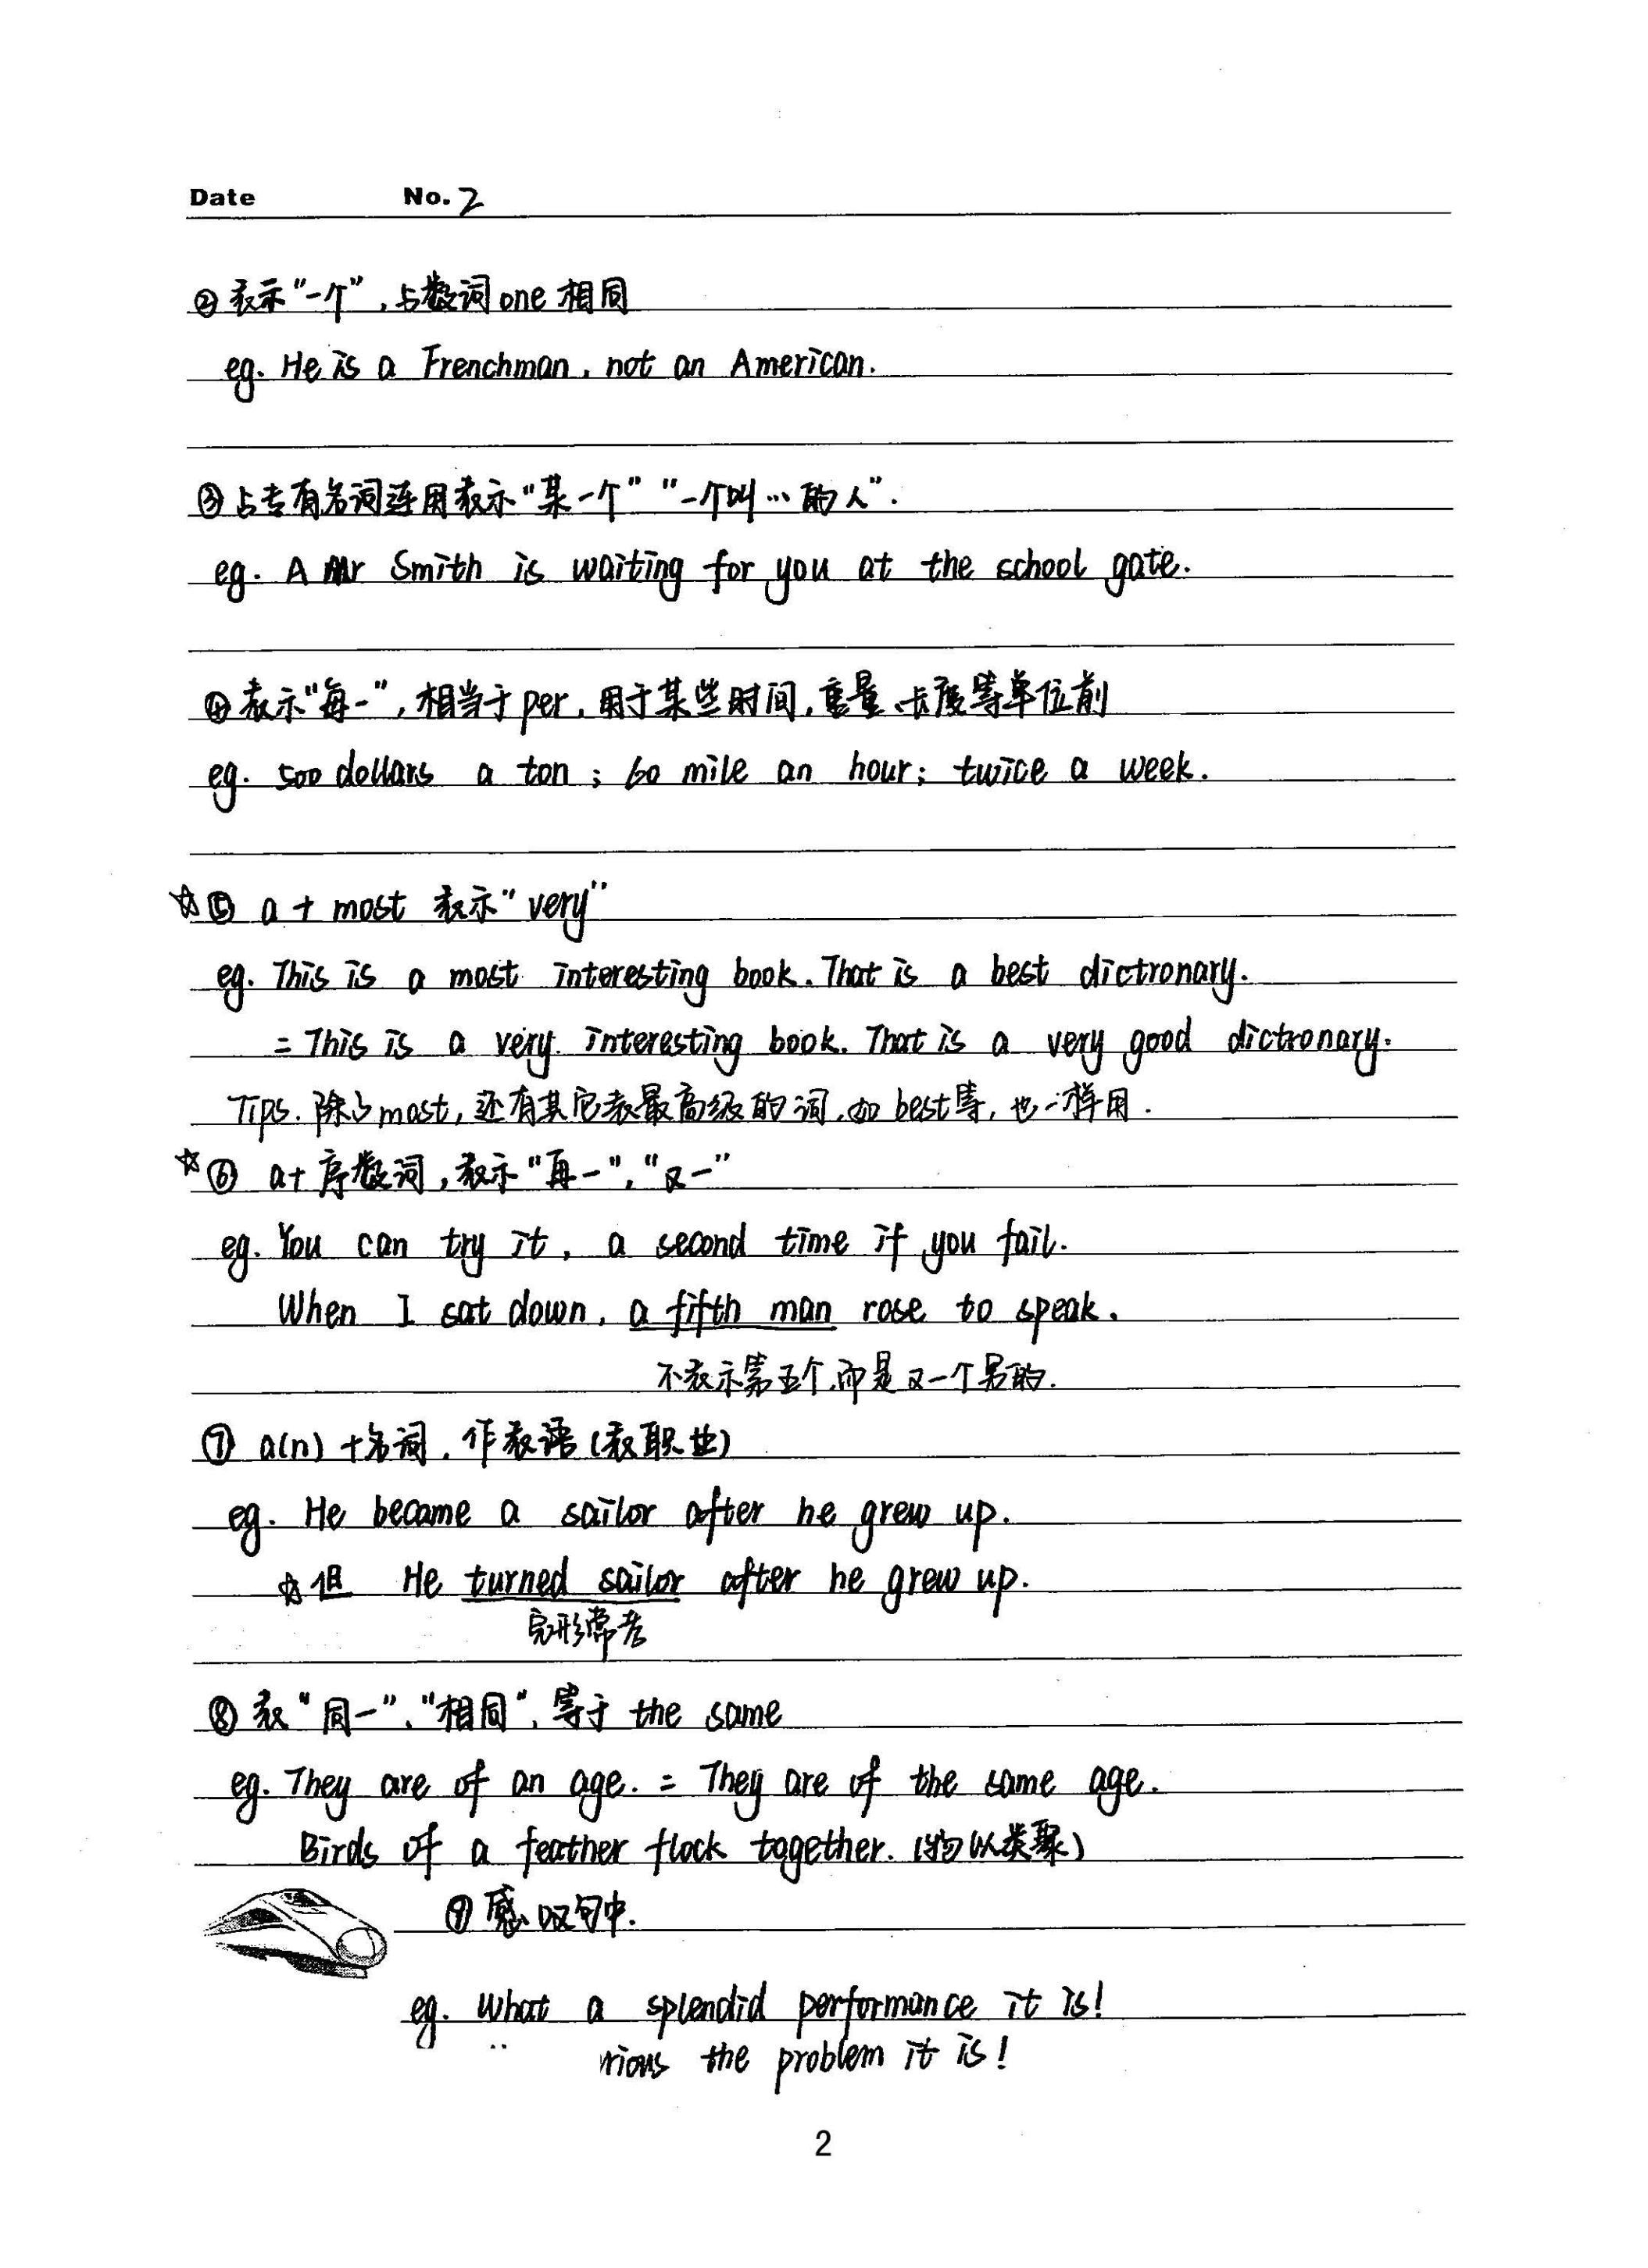 Date No. 2
② 表示“一个”,与数词one相同
eg. He is a Frenchman, not an American.
③ 与专有名词连用表示“某一个”“一个叫…的人”.
eg. A Mr Smith is waiting for you at the school gate.
④ 表示“每一”,相当于per,用于某些时间,重量、长度等单位前
eg. 500 dollars a ton; 60 mile an hour; twice a week.
☆⑤ a + most 表示“very”
eg. This is a most interesting book. That is a best dictronary.
= This is a very interesting book. That is a very good dictronary.
Tips. 除了most,还有其它表最高级的词,如best等,也一样用.
☆⑥ a+序数词,表示“再一”,“又一”
eg. You can try it, a second time if you fail.
When I sat down, a fifth man rose to speak.
不表示第五个,而是又一个男的.
⑦ a(n)+名词,作表语(表职业)
eg. He became a sailor after he grew up.
☆但 He turned sailor after he grew up.
完形常考
⑧ 表“同一”、“相同”,等于 the same
eg. They are of an age. = They are of the same age.
Birds of a feather flock together. (物以类聚)
⑨ 感叹句中.
eg. What a splendid performance it is!
the problem it is!
2